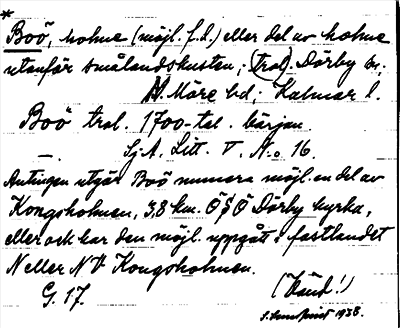 *
Boö, holme (möjl. f.d.) eller del av holme
utanför smålandskusten; trol. Dörby sn,
N. Möre hd; Kalmar l.
Boö trol. 1700-tal. början
Sj. A. Litt. V. No 16.
Antingen utgör Boö numera möjl. en del av
Kongsholmen, 3,8 km. Ö§Ö Dörby kyrka,
eller ock har den möjl. uppgått i fastlandet
N eller NV Kongsholmen.
G. 17. (Känd!)
1938.